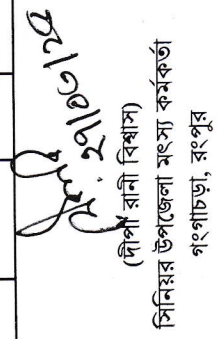 ২৭/০৩/২৫
(দীপা রানী বিশ্বাস)
সিনিয়র উপজেলা মৎস্য কর্মকর্তা
গংগাচড়া, রংপুর